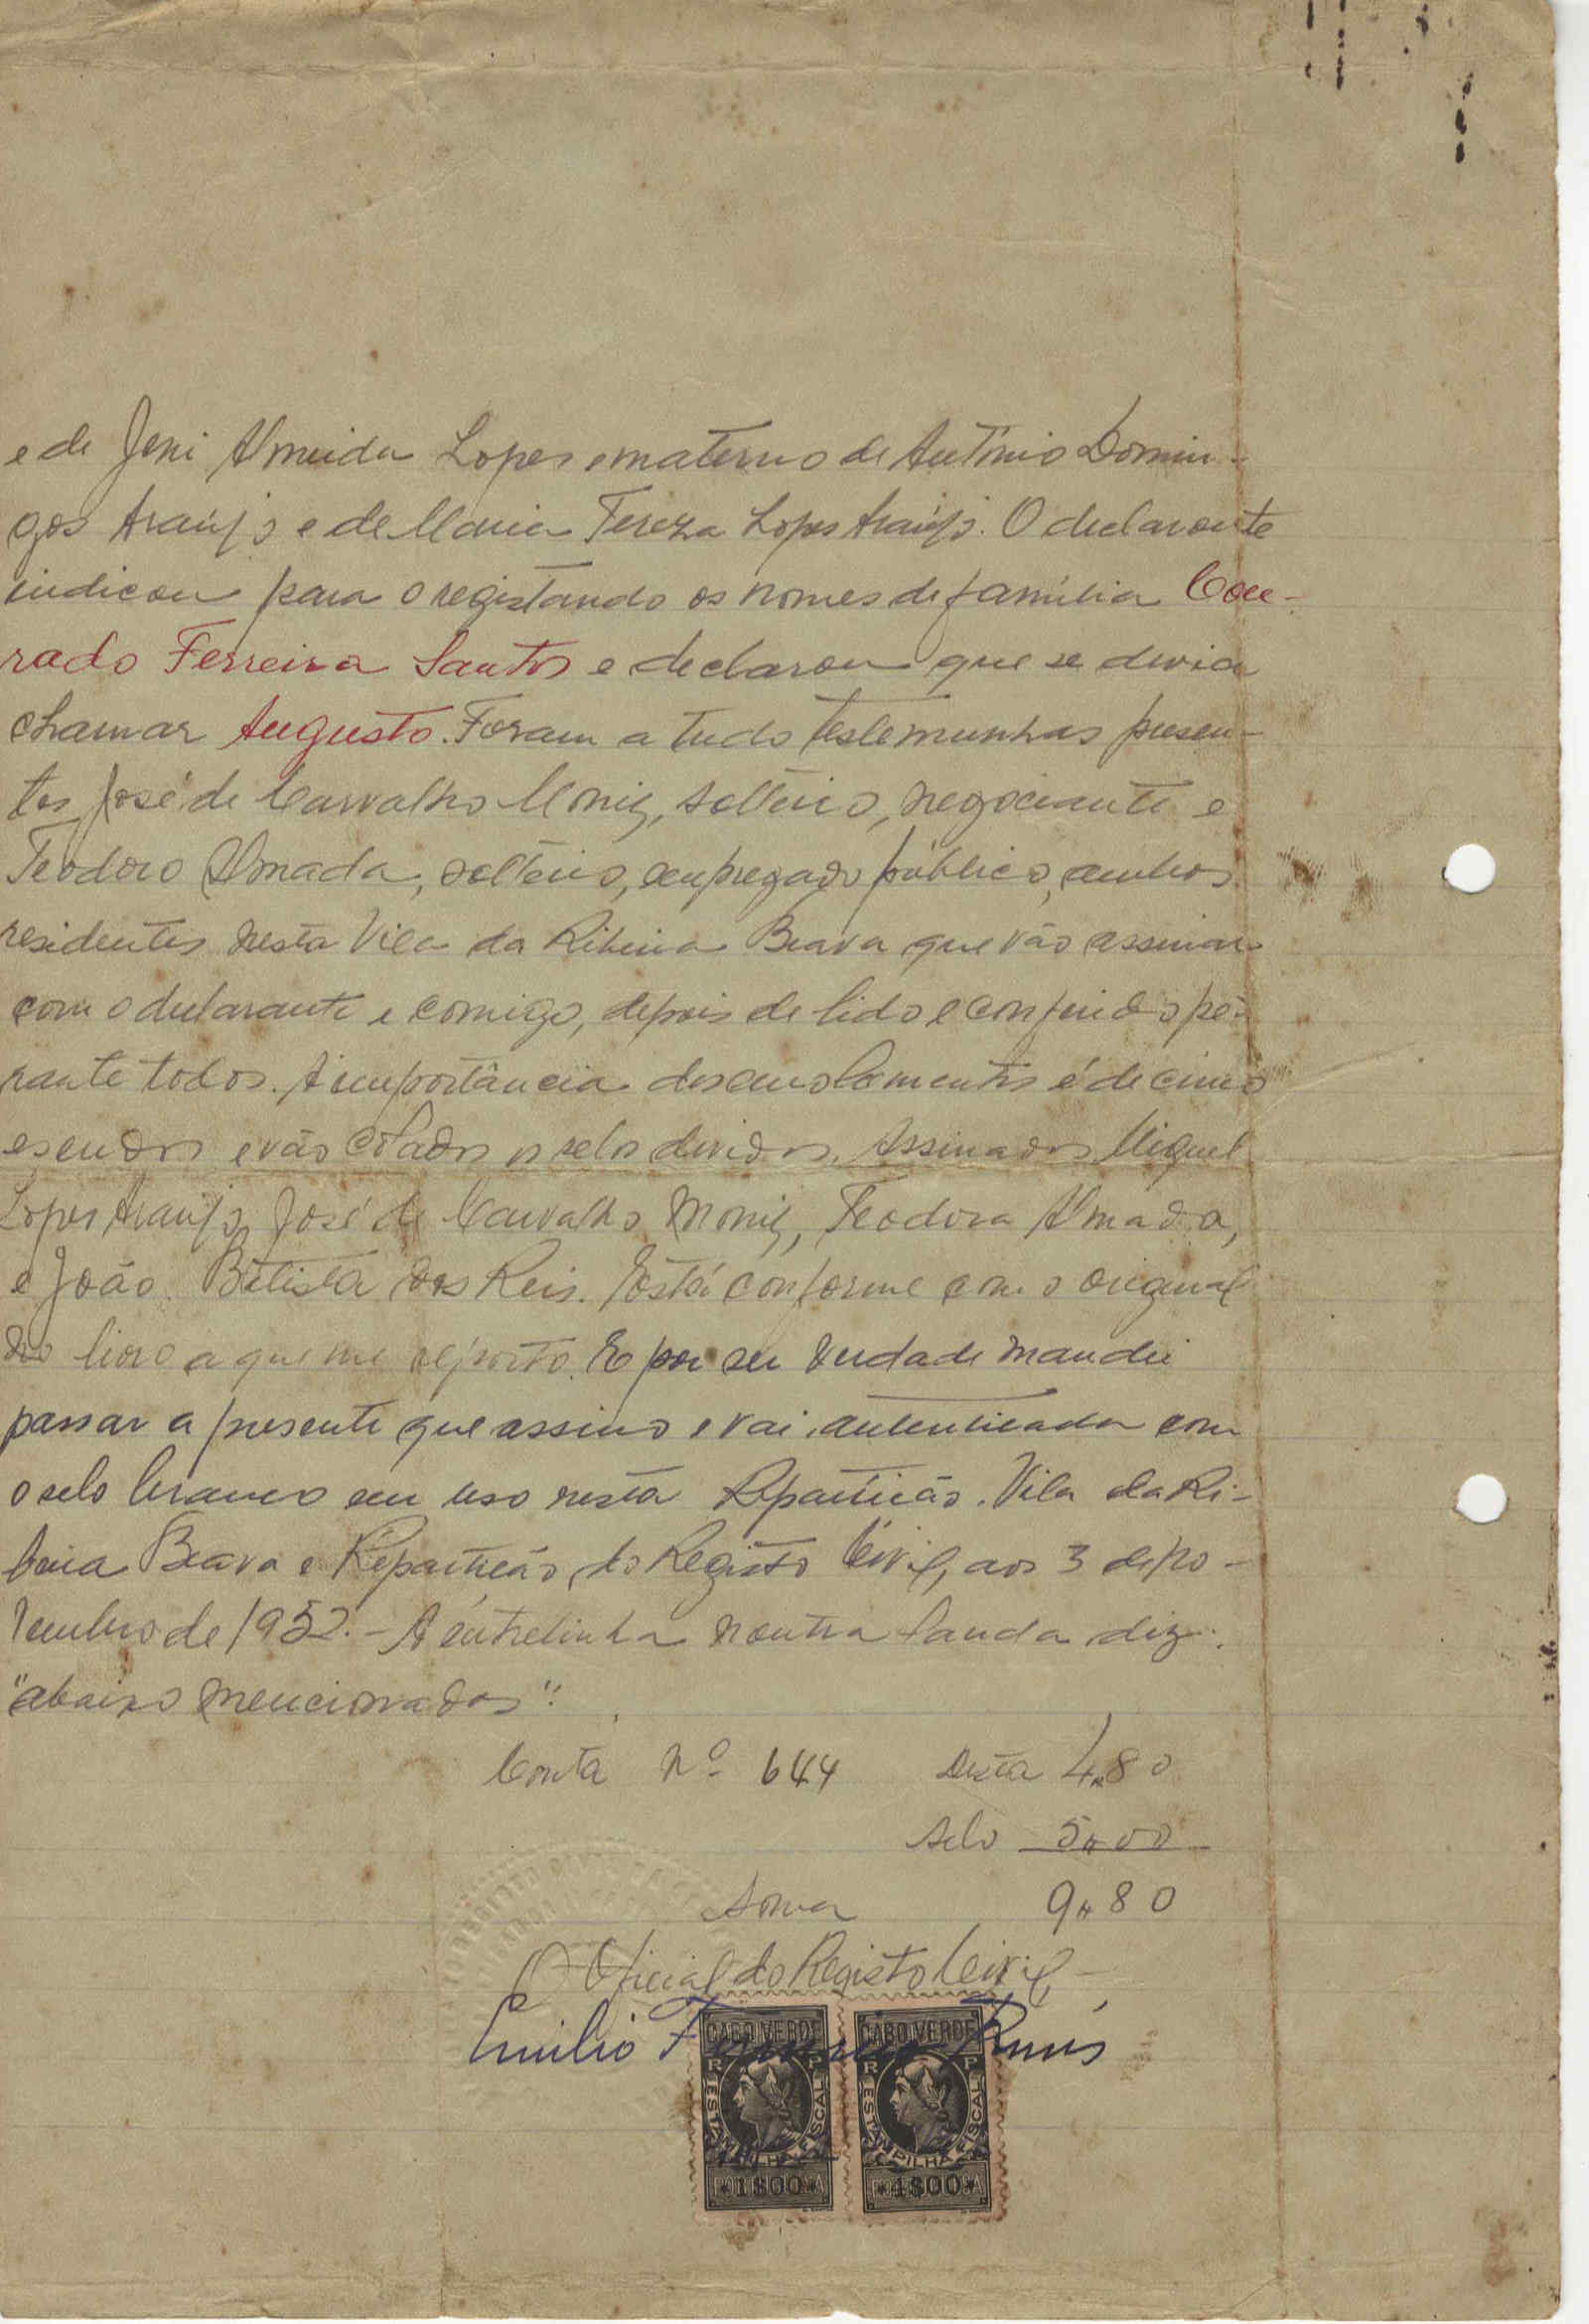 e de Jeni Almeida Lopes e materno de António Domin-
gos Araújo e de Maria Tereza Lopes Araújo. O declarante
indicou para o registando os nomes de família Con-
rado Ferreira Santos e declarou que se devia
chamar Augusto. Foram a tudo testemunhas presen-
tes, José de Carvalho Moniz, solteiro, negociante e
Teodoro Almada, solteiro, empregado público, ambos
residentes nesta Vila da Ribeira Brava que vão assinar
com o declarante e comigo, depois de lido e conferido pe-
rante todos. A importância dos emolumentos é de cinco
escudos e vão colados os selos devidos. Assinados Miguel
Lopes Araújo, José de Carvalho Moniz, Teodoro Almada,
e João Batista dos Reis. Está conforme com o original
do livro a que me reporto. E por ser verdade mandei
passar a presente que assino e vai autenticada com
o selo branco em uso nesta Repartição. Vila da Ri-
beira Brava e Repartição do Registo Civil, aos 3 de No-
vembro de 1952. - A entrelinha noutra lauda diz:
"abaixo mencionados".
Conta Nº 644 Desta 4$80
Selo 5$00
Soma 9$80
O Oficial do Registo Civil,
Emilio
CABO VERDE CABO VERDE
R P R P
ESTAMPILHA FISCAL ESTAMPILHA FISCAL
*1$00* *4$00*